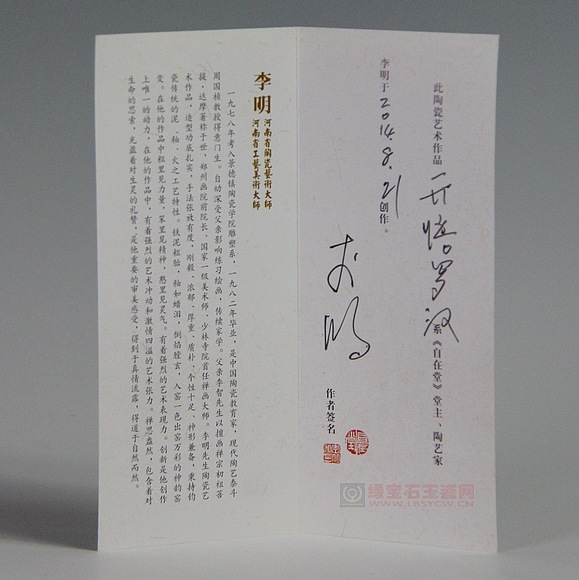 此陶瓷艺术作品 开悟罗汉 系《自在堂》堂主、陶艺家
李明于2014.8.21创作。
李明
作者签名
李明
河南省陶瓷藝術大师
河南省工藝美術大师
一九七八年考入景德镇陶瓷学院雕塑系，一九八二年毕业，是中国陶瓷教育家，现代陶艺泰斗
周国桢教授得意门生。自幼深受父亲影响练习绘画，传续家学。父亲李智先生以擅画禅宗初祖菩
提·达摩著称于世，郑州画院前院长、国家一级美术师、少林寺院首任禅画大师。李明先生陶瓷艺
术作品，造型功底扎实，手法张放有度，刚毅、浓郁、厚重、质朴、个性十足、神形兼备，秉持钧
瓷传统的泥、釉、火之工艺特性。铁泥粗胎，釉如蜡泪，倒焰膛玄，入窑一色出窑万彩的神韵窑
变。在他的作品中粗里见力量，笨里见精神，憨里见灵气。有着强烈的艺术表现力。创新是他创作
上唯一的动力，在他的作品中，有着强烈的艺术冲动和激情四溢的艺术张力。禅思盎然，包含着对
生命的思索，充盈着对生灵的礼赞，是他重要的审美感受，得到于真情流露，得道于自然而然。
绿宝石玉瓷网
WWW.LBSYCW.CN